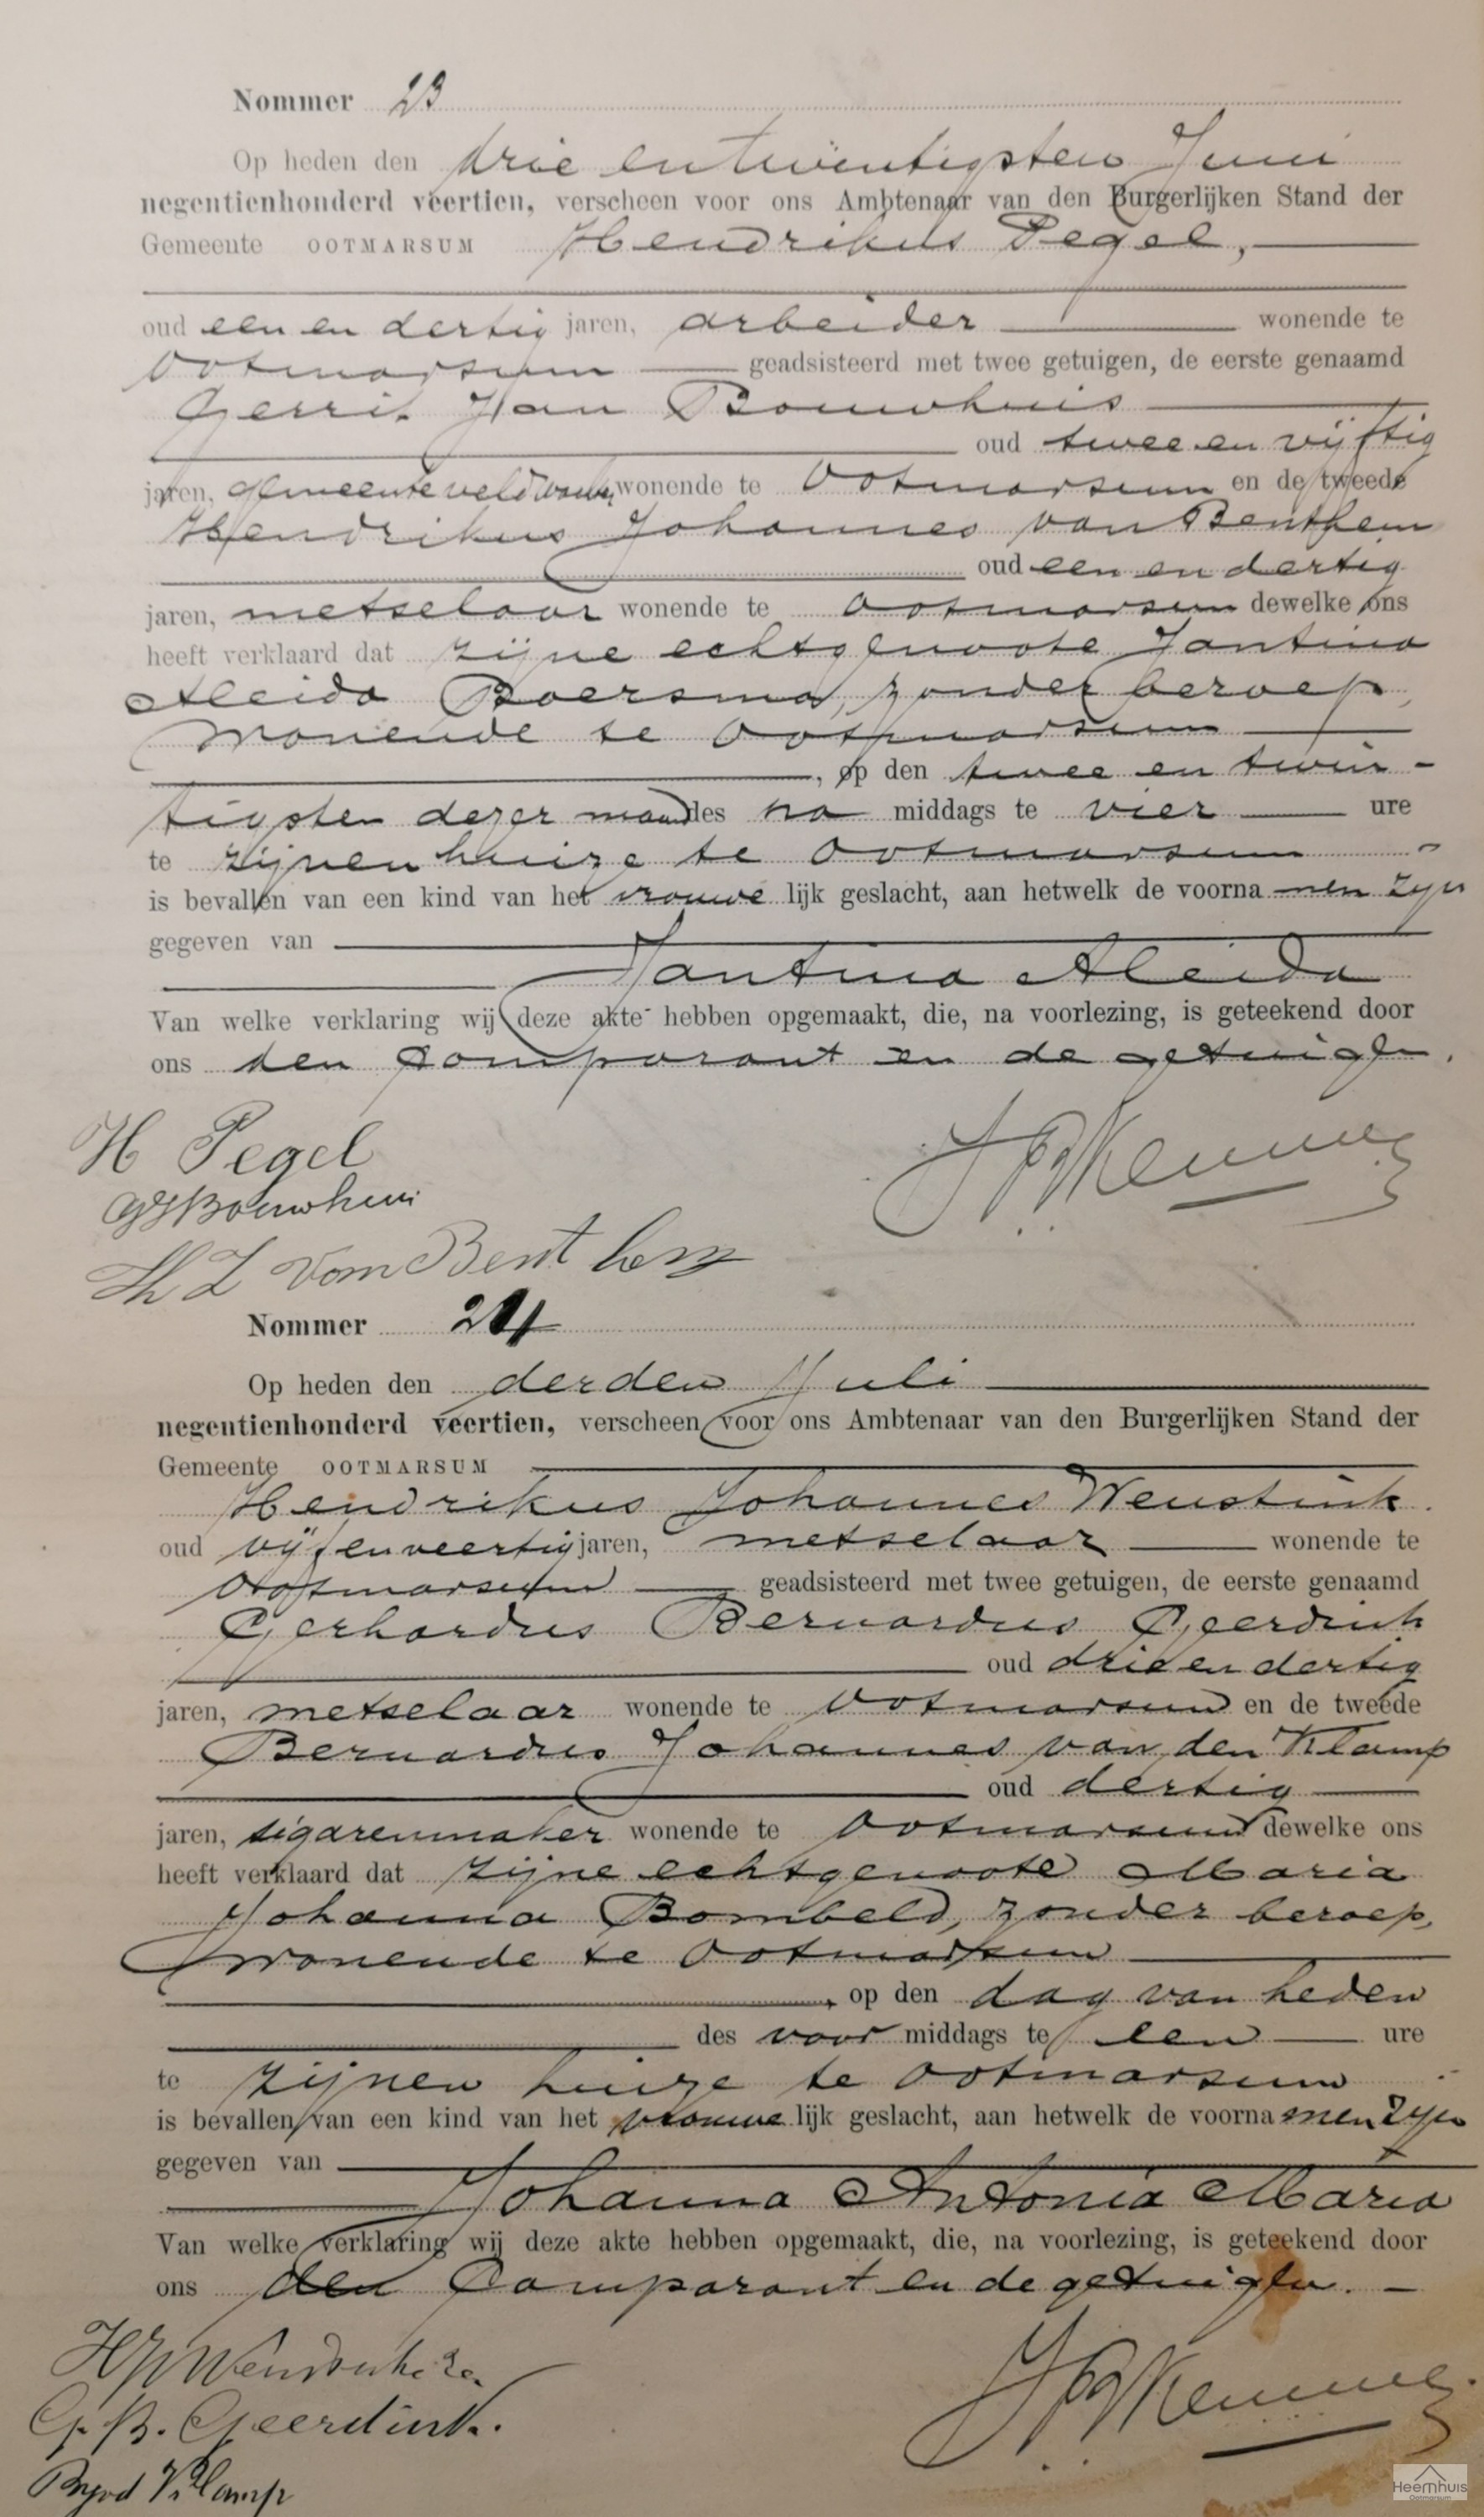 Nommer 23
Op heden den drie en twintigsten Juni
negentienhonderd veertien, verscheen voor ons Ambtenaar van den Burgerlijken Stand der
Gemeente OOTMARSUM Hendrikus Pegel,
oud een en dertig jaren, arbeider wonende te
Ootmarsum geadsisteerd met twee getuigen, de eerste genaamd
Gerrit Jan Bouwhuis
oud twee en vijftig
jaren, gemeenteveldwachter, wonende te Ootmarsum en de tweede
Hendrikus Johannes van Benthem
oud een en dertig
jaren, metselaar wonende te Ootmarsum dewelke ons
heeft verklaard dat zijne echtgenoote Jantina
Aleida Boersma, zonder beroep,
wonende te Ootmarsum
, op den twee en twin-
tigsten dezer maand des na middags te vier ure
te zijnen huize te Ootmarsum
is bevallen van een kind van het vrouwe lijk geslacht, aan hetwelk de voorna men zijn
gegeven van
Jantina Aleida
Van welke verklaring wij deze akte hebben opgemaakt, die, na voorlezing, is geteekend door
ons den comparant en de getuigen.
H Pegel
GJBouwhuis
van Benthem
Nommer 24
Op heden den derden Juli
negentienhonderd veertien, verscheen voor ons Ambtenaar van den Burgerlijken Stand der
Gemeente OOTMARSUM
Hendrikus Johannes Weustink
oud vijf en veertig jaren, metselaar wonende te
Ootmarsum geadsisteerd met twee getuigen, de eerste genaamd
Gerhardus Bernardus Geerdink
oud drie en dertig
jaren, metselaar wonende te Ootmarsum en de tweede
Bernardus Johannes van den Klamp
oud dertig
jaren, sigarenmaker wonende te Ootmarsum dewelke ons
heeft verklaard dat zijne echtgenoote Maria
Johanna Bombeld, zonder beroep,
wonende te Ootmarsum
, op den dag van heden
des voor middags te een ure
te zijnen huize te Ootmarsum
is bevallen van een kind van het vrouwe lijk geslacht, aan hetwelk de voorna men zijn
gegeven van
Johanna Antonia Maria
Van welke verklaring wij deze akte hebben opgemaakt, die, na voorlezing, is geteekend door
ons den comparant en de getuigen.
G. B. Geerdink.
Klamp
Heemhuis
Ootmarsum